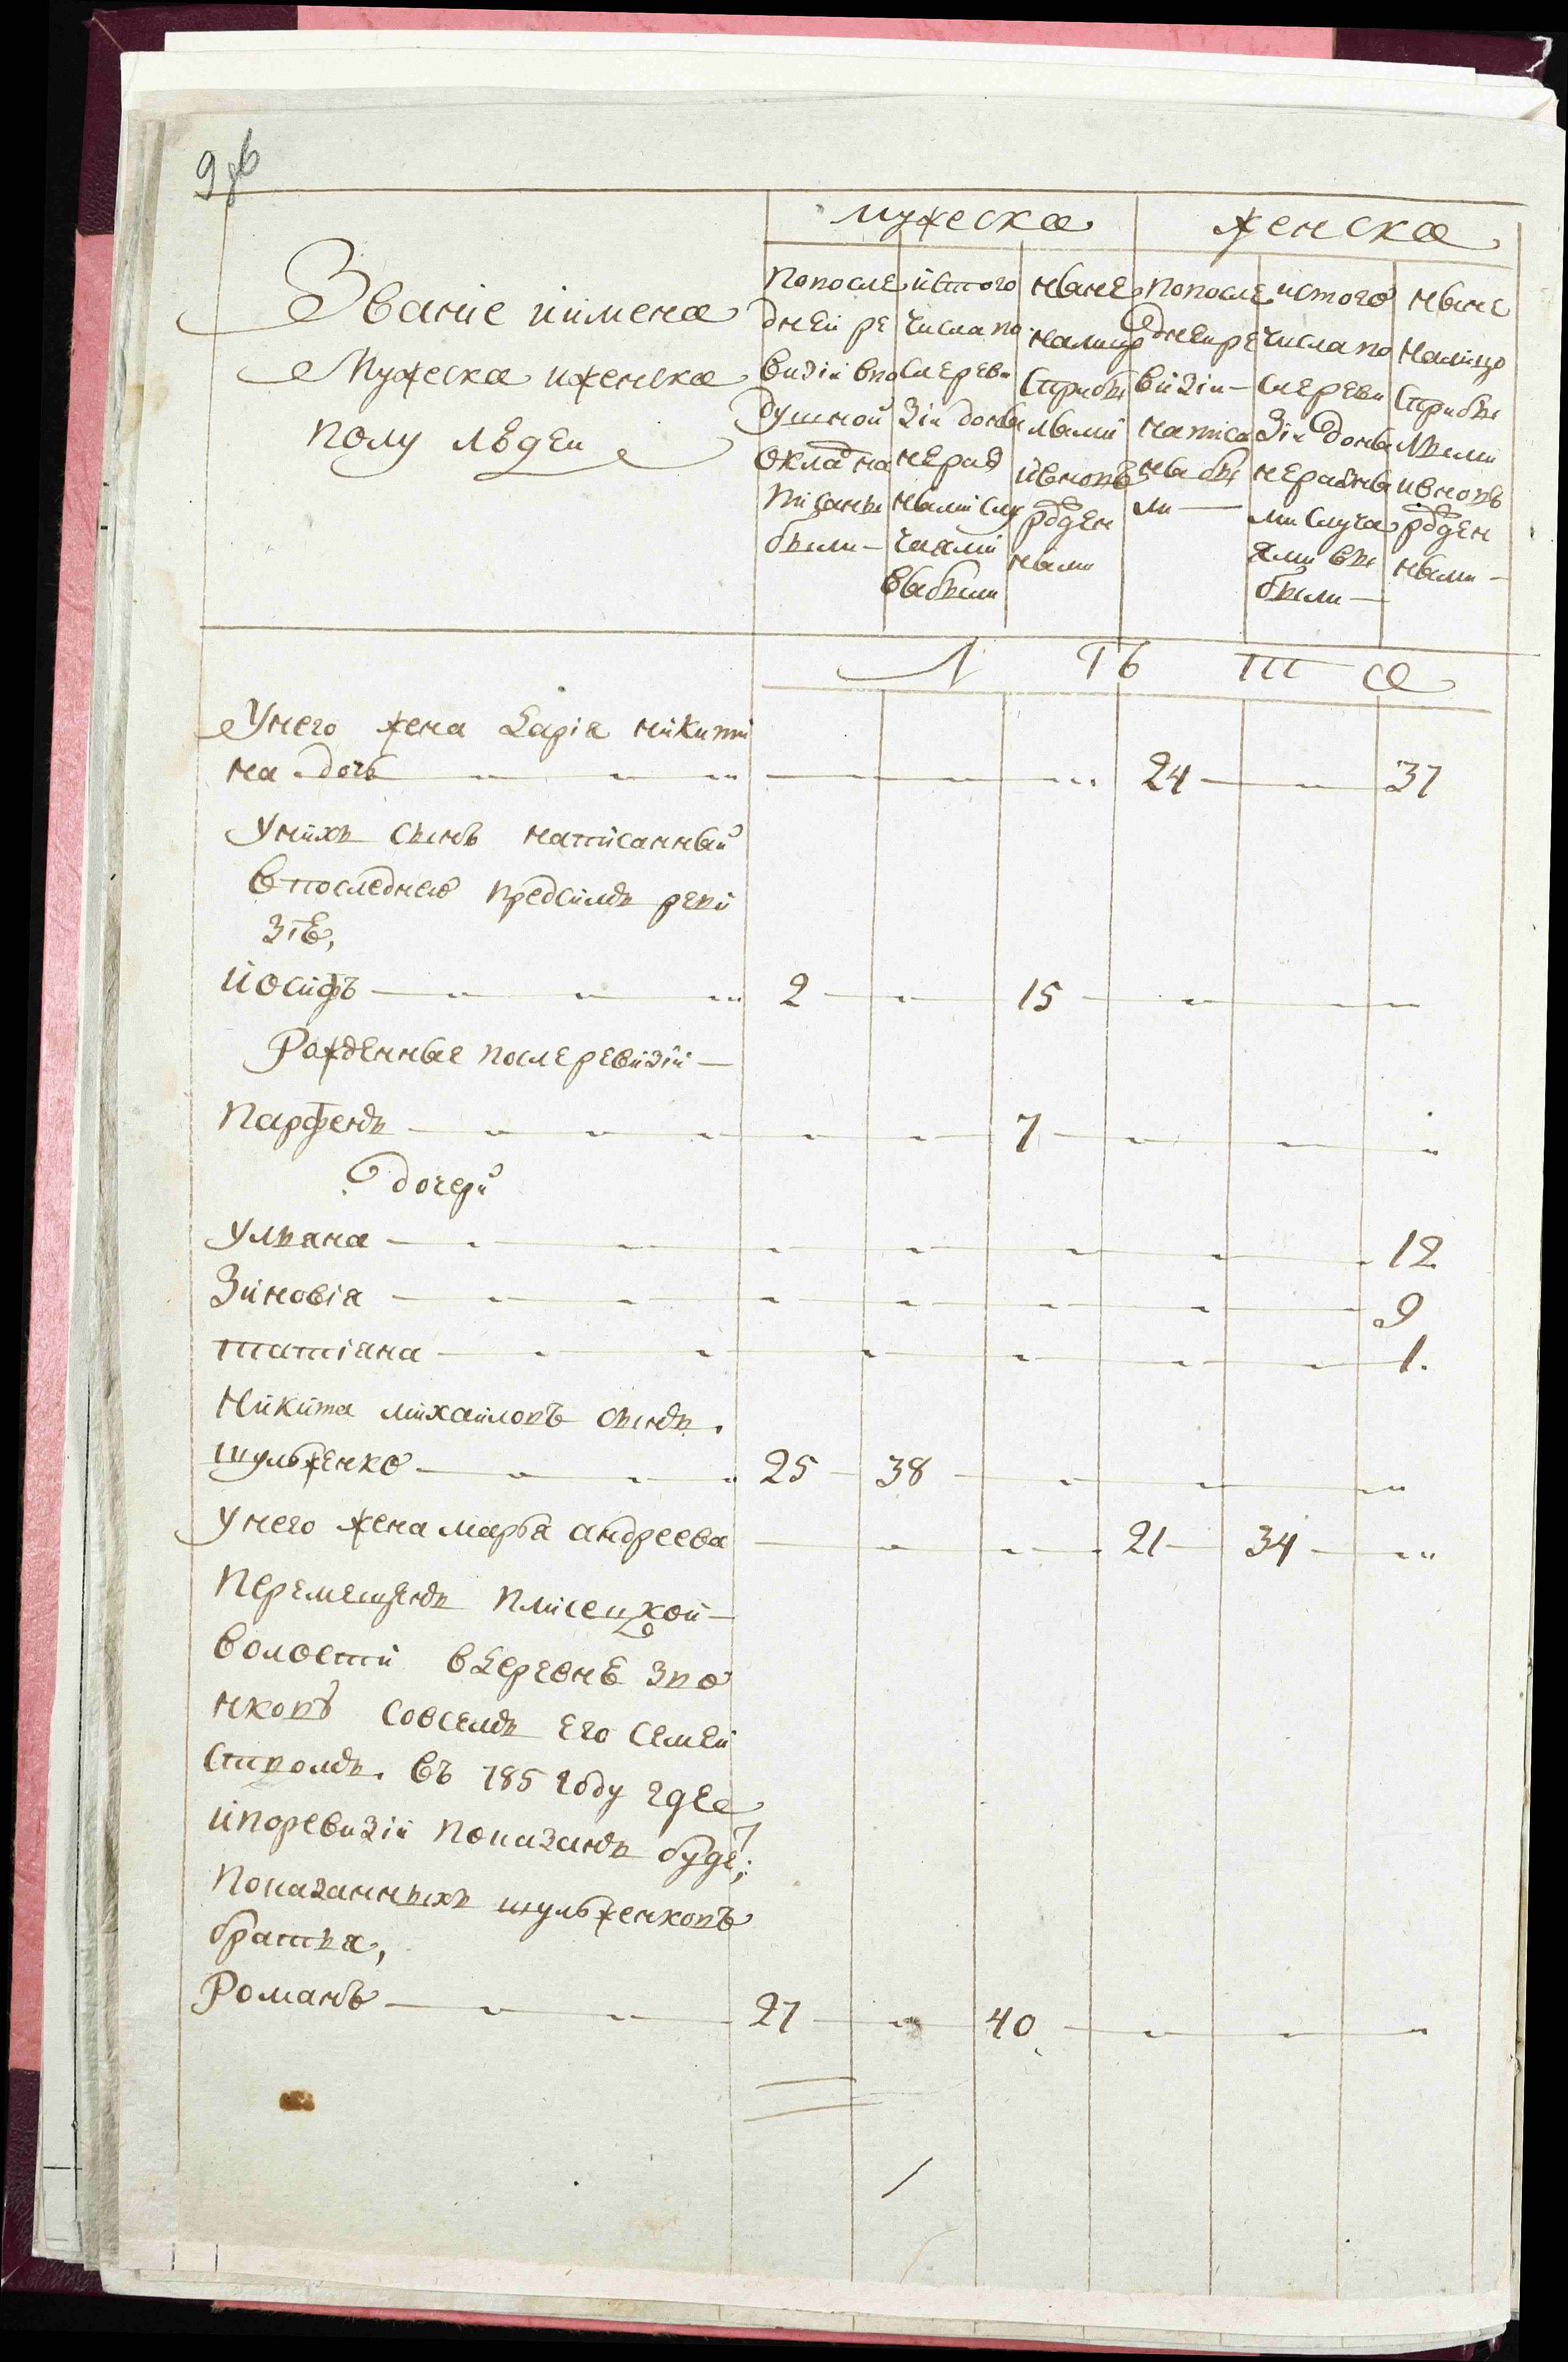 9об
мужеска женска
Званіе иимена
Мужеска иженска
полу людеи
попосле
дней ре
визіи впо
душной
окла на
писаны
были —
истого
числа по
слереви
зіи доны
нераз
ными слу
чаями
выбыли
ныне
налицо
Стрибы
лыми
ивновъ
рожден
ными
попосле
днеире
визіи —
написа
ны бы
ли —
истого
числа по
слереви
зіи доны
неразны
ми случа
ями вы
были —
ныне
налицо
Стрибы
лыми
ивновъ
рожден
ными —
Л ѣ т а
Унего жена Дарія никити
на дочь 24 37
Унихъ сынъ написанный
впоследнею предсимъ реви
зіе,
иосифъ 2 15
Рожденные послеревизіи —
Парфенъ 7
дочери
Ульяна 12
Зиновія 9
татіяна 1.
Никита михаиловъ сынъ
шульженко 25 38
унего жена марья андреева 21 34
перемещенъ плисецкой —
волости вдеревнѣ зво
нковъ совсемъ его семей
ствомъ въ 785 году где
ипоревизіи показанъ буде;
показанныхъ шульженковъ
братья,
Романъ 27 40